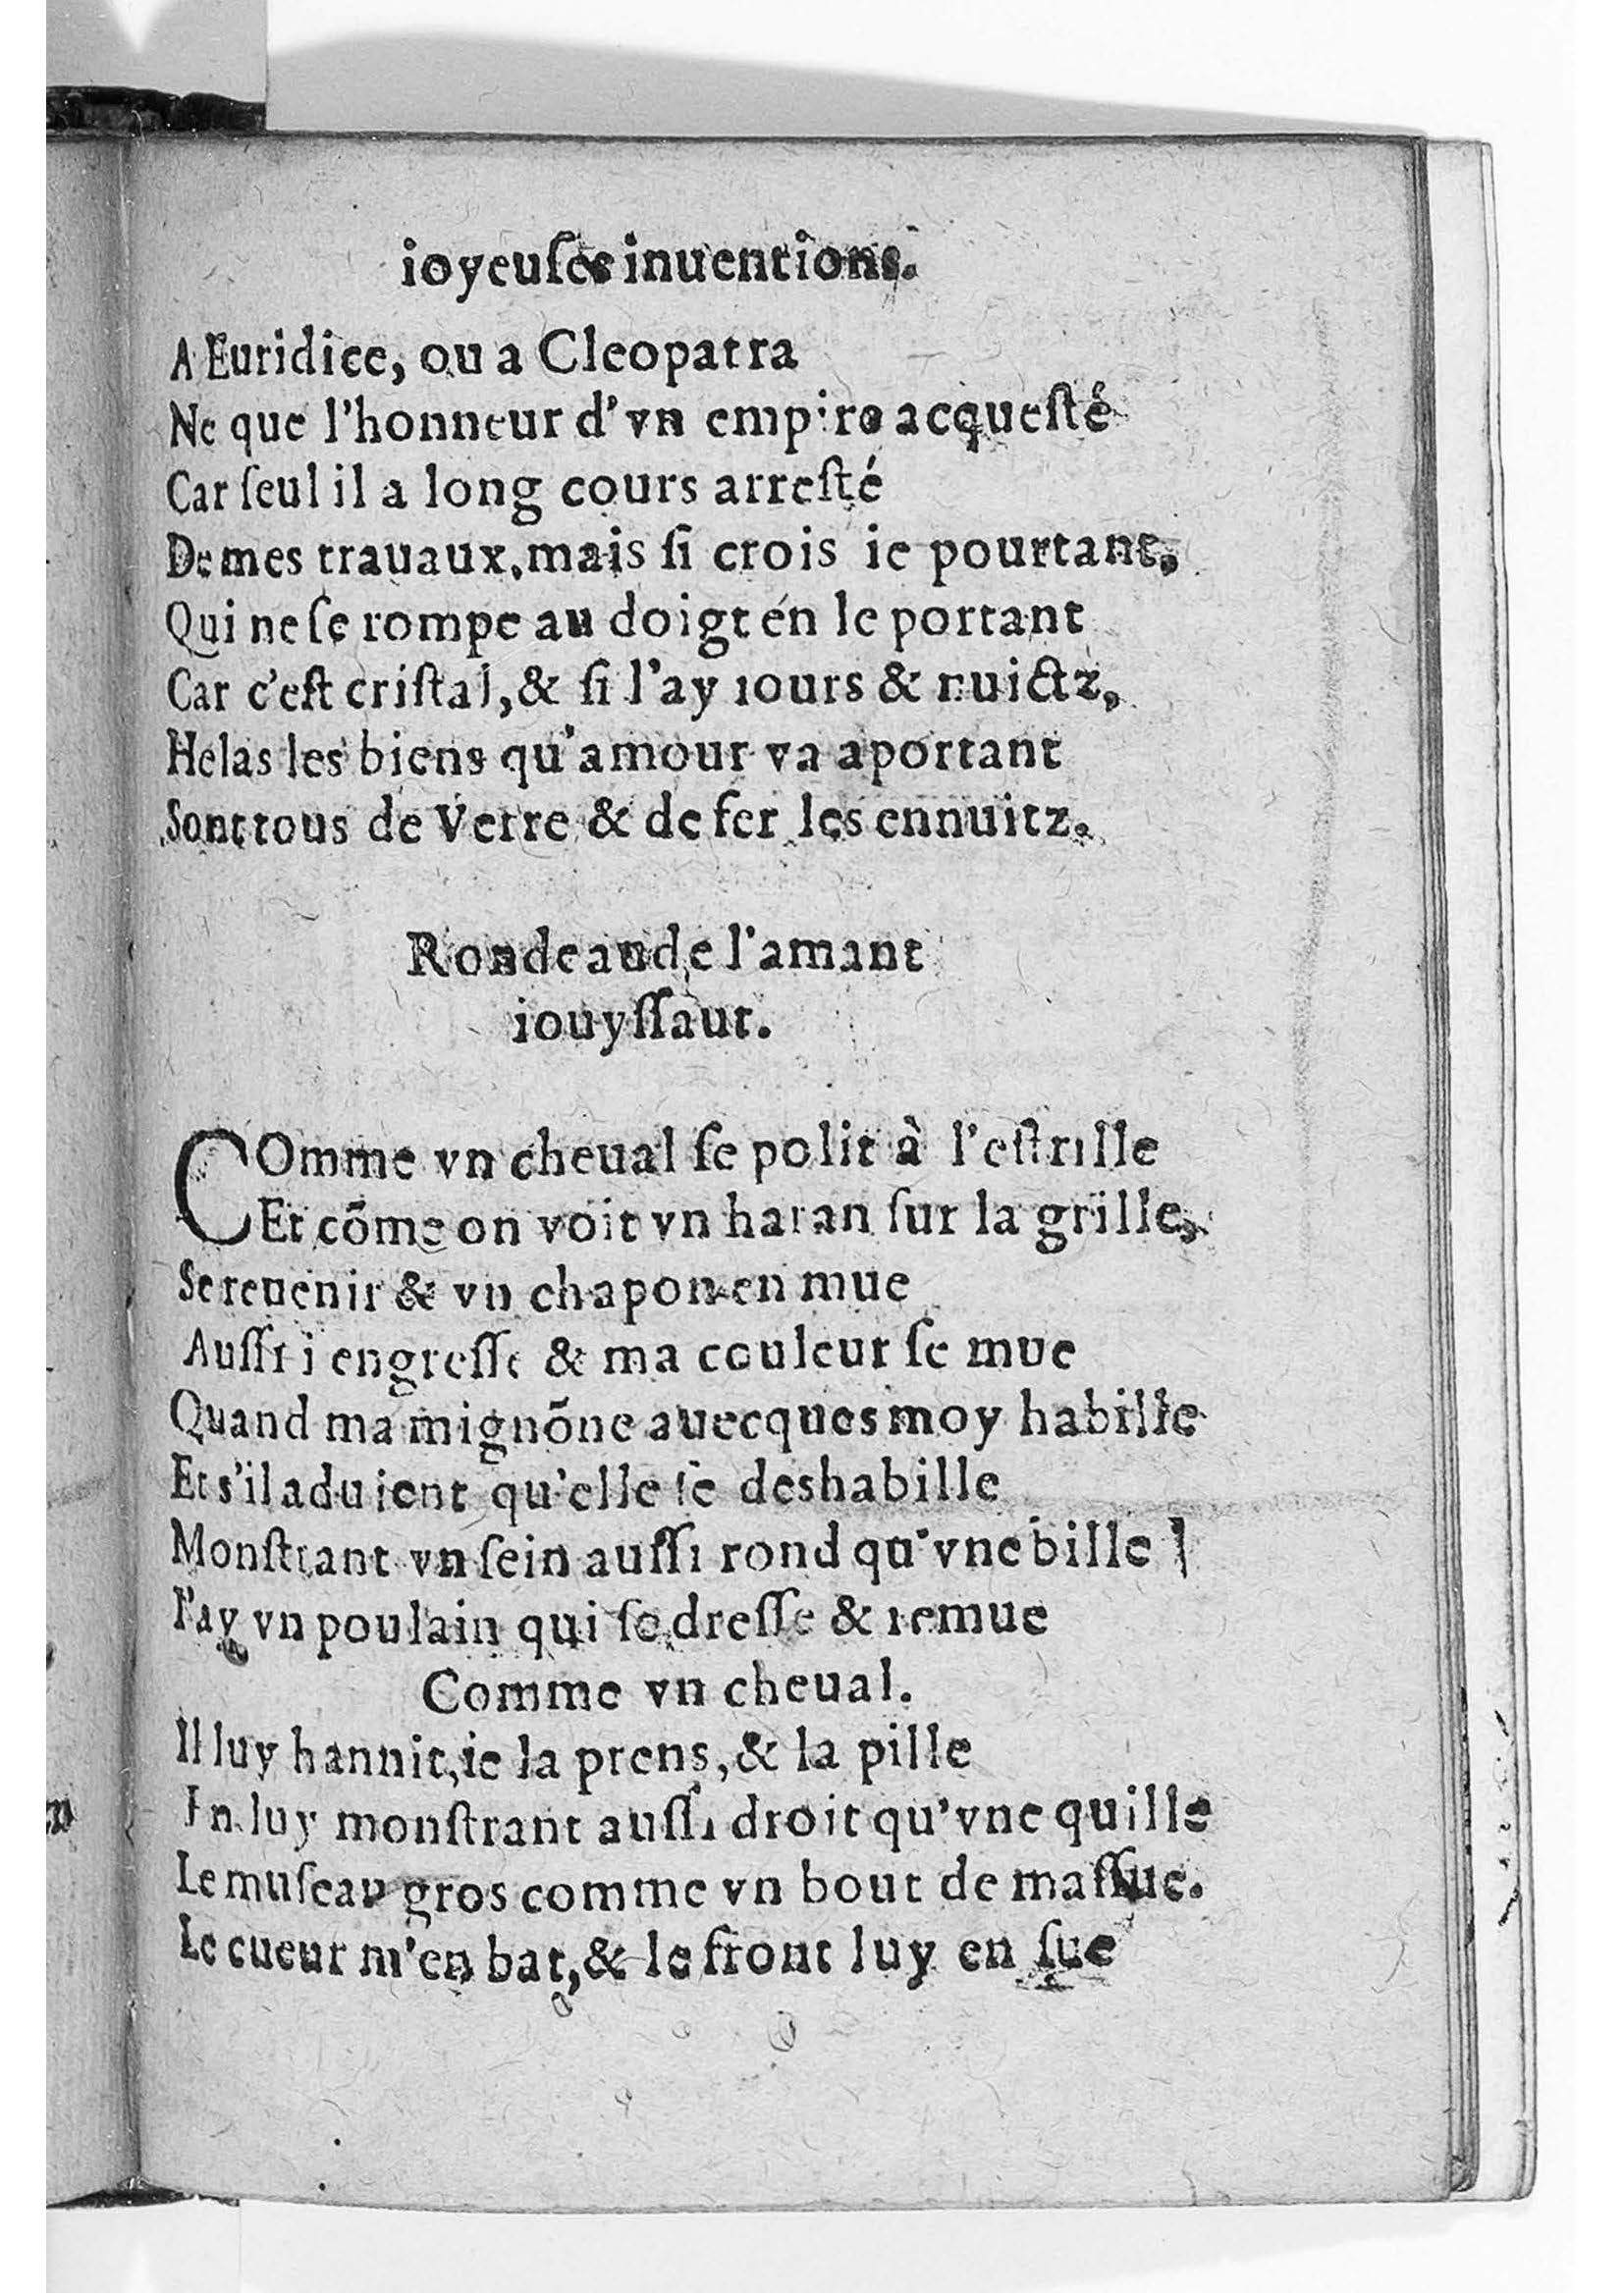 ioyeuſes inuentions.
A Euridice, ou a Cleopatra
Ne que l'honneur d'vn empire acqueſté
Car ſeul il a long cours arreſté
De mes trauaux, mais ſi crois ie pourtant,
Qui ne ſe rompe au doigt en le portant
Car c'eſt criſtal, & ſi l'ay iours & nuictz,
Helas les biens qu'amour va aportant
Sont tous de Verre & de fer les ennuitz.
Rondeau de l'amant
iouyſſaut.
COmme vn cheual ſe polit à l'eſtrille
Et cõme on voit vn haran ſur la grille,
Se reuenir & vn chapon en mue
Auſſi i engreſſe & ma couleur ſe mue
Quand ma mignõne auecques moy habille
Et s'il aduient qu'elle ſe deshabille
Monſtrant vn ſein auſſi rond qu'vne bille
I'ay vn poulain qui ſe dreſſe & remue
Comme vn cheual.
Il luy hannit, ie la prens, & la pille
En luy monſtrant auſſi droit qu'vne quille
Le muſeau gros comme vn bout de maſſue.
Le cueur m'en bat, & le front luy en ſue